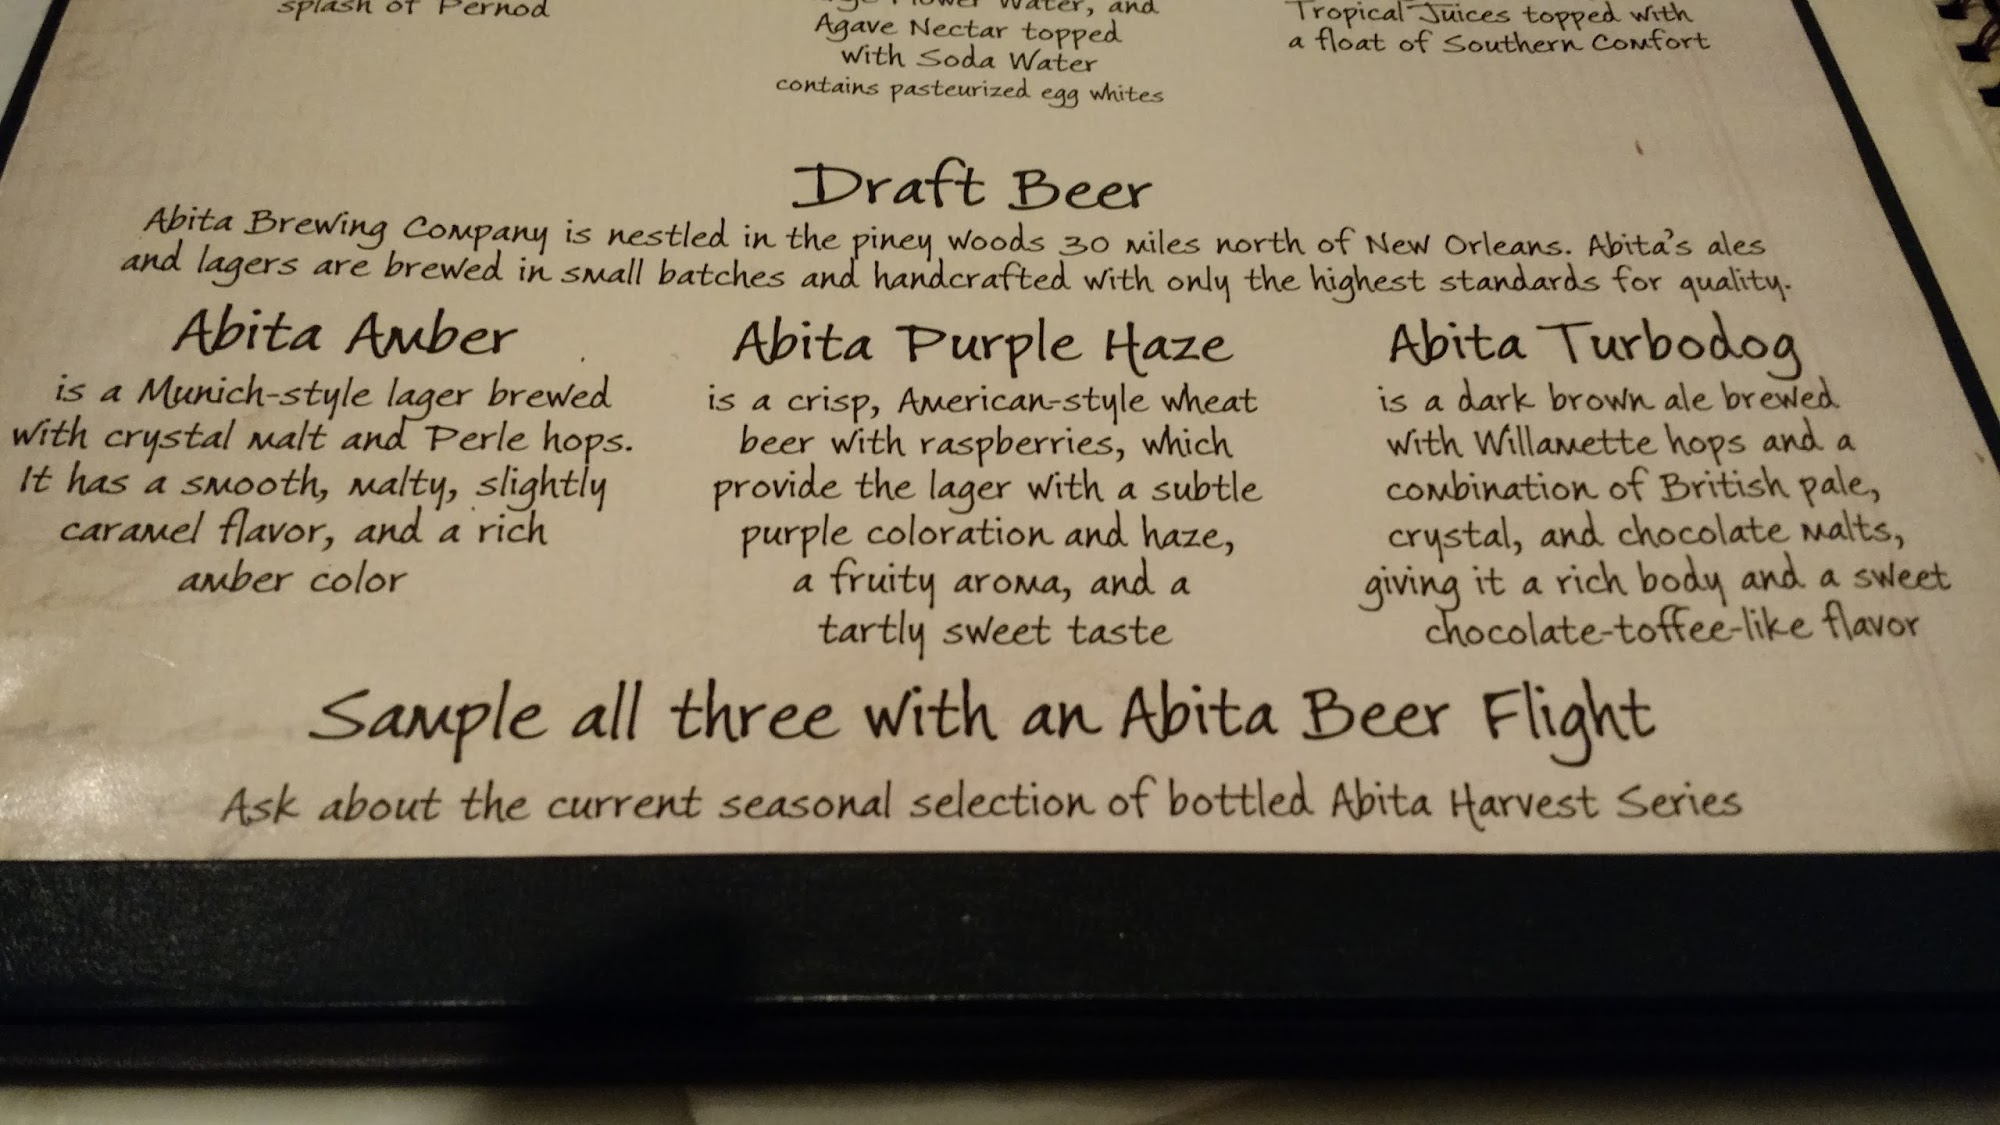 splash of Pernod
Flower Water, and
Agave Nectar topped
with Soda Water
contains pasteurized egg whites
Tropical Juices topped with
a float of Southern Comfort
Draft Beer
Abita Brewing Company is nestled in the piney woods 30 miles north of New Orleans. Abita's ales
and lagers are brewed in small batches and handcrafted with only the highest standards for quality.
Abita Amber
is a Munich-style lager brewed
with crystal malt and Perle hops.
It has a smooth, malty, slightly
caramel flavor, and a rich
amber color
Abita Purple Haze
is a crisp, American-style wheat
beer with raspberries, which
provide the lager with a subtle
purple coloration and haze,
a fruity aroma, and a
tartly sweet taste
Abita Turbodog
is a dark brown ale brewed
with Willamette hops and a
combination of British pale,
crystal, and chocolate malts,
giving it a rich body and a sweet
chocolate-toffee-like flavor
Sample all three with an Abita Beer Flight
Ask about the current seasonal selection of bottled Abita Harvest Series